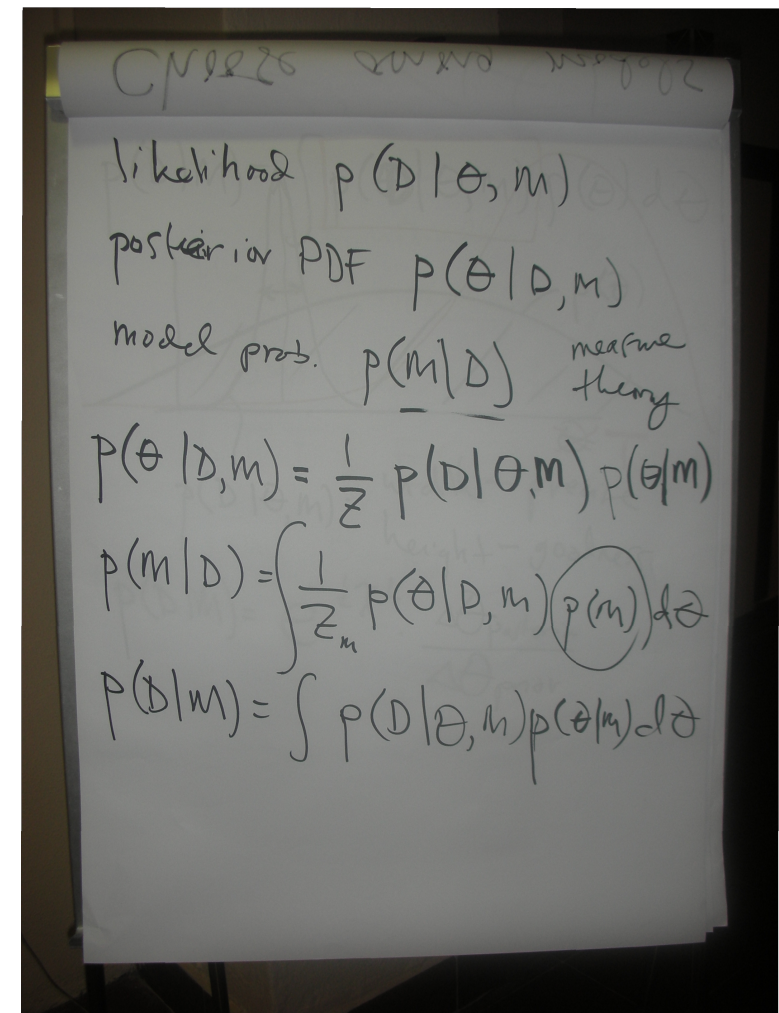 likelihood p(D|θ,M)
posterior PDF p(θ|D,M)
model prob. p(M|D) measure theory
p(θ|D,M) = 1/Z p(D|θ,M) p(θ|M)
p(M|D) = ∫ 1/Z_m p(θ|D,M) p(M) dθ
p(D|M) = ∫ p(D|θ,M) p(θ|M) dθ